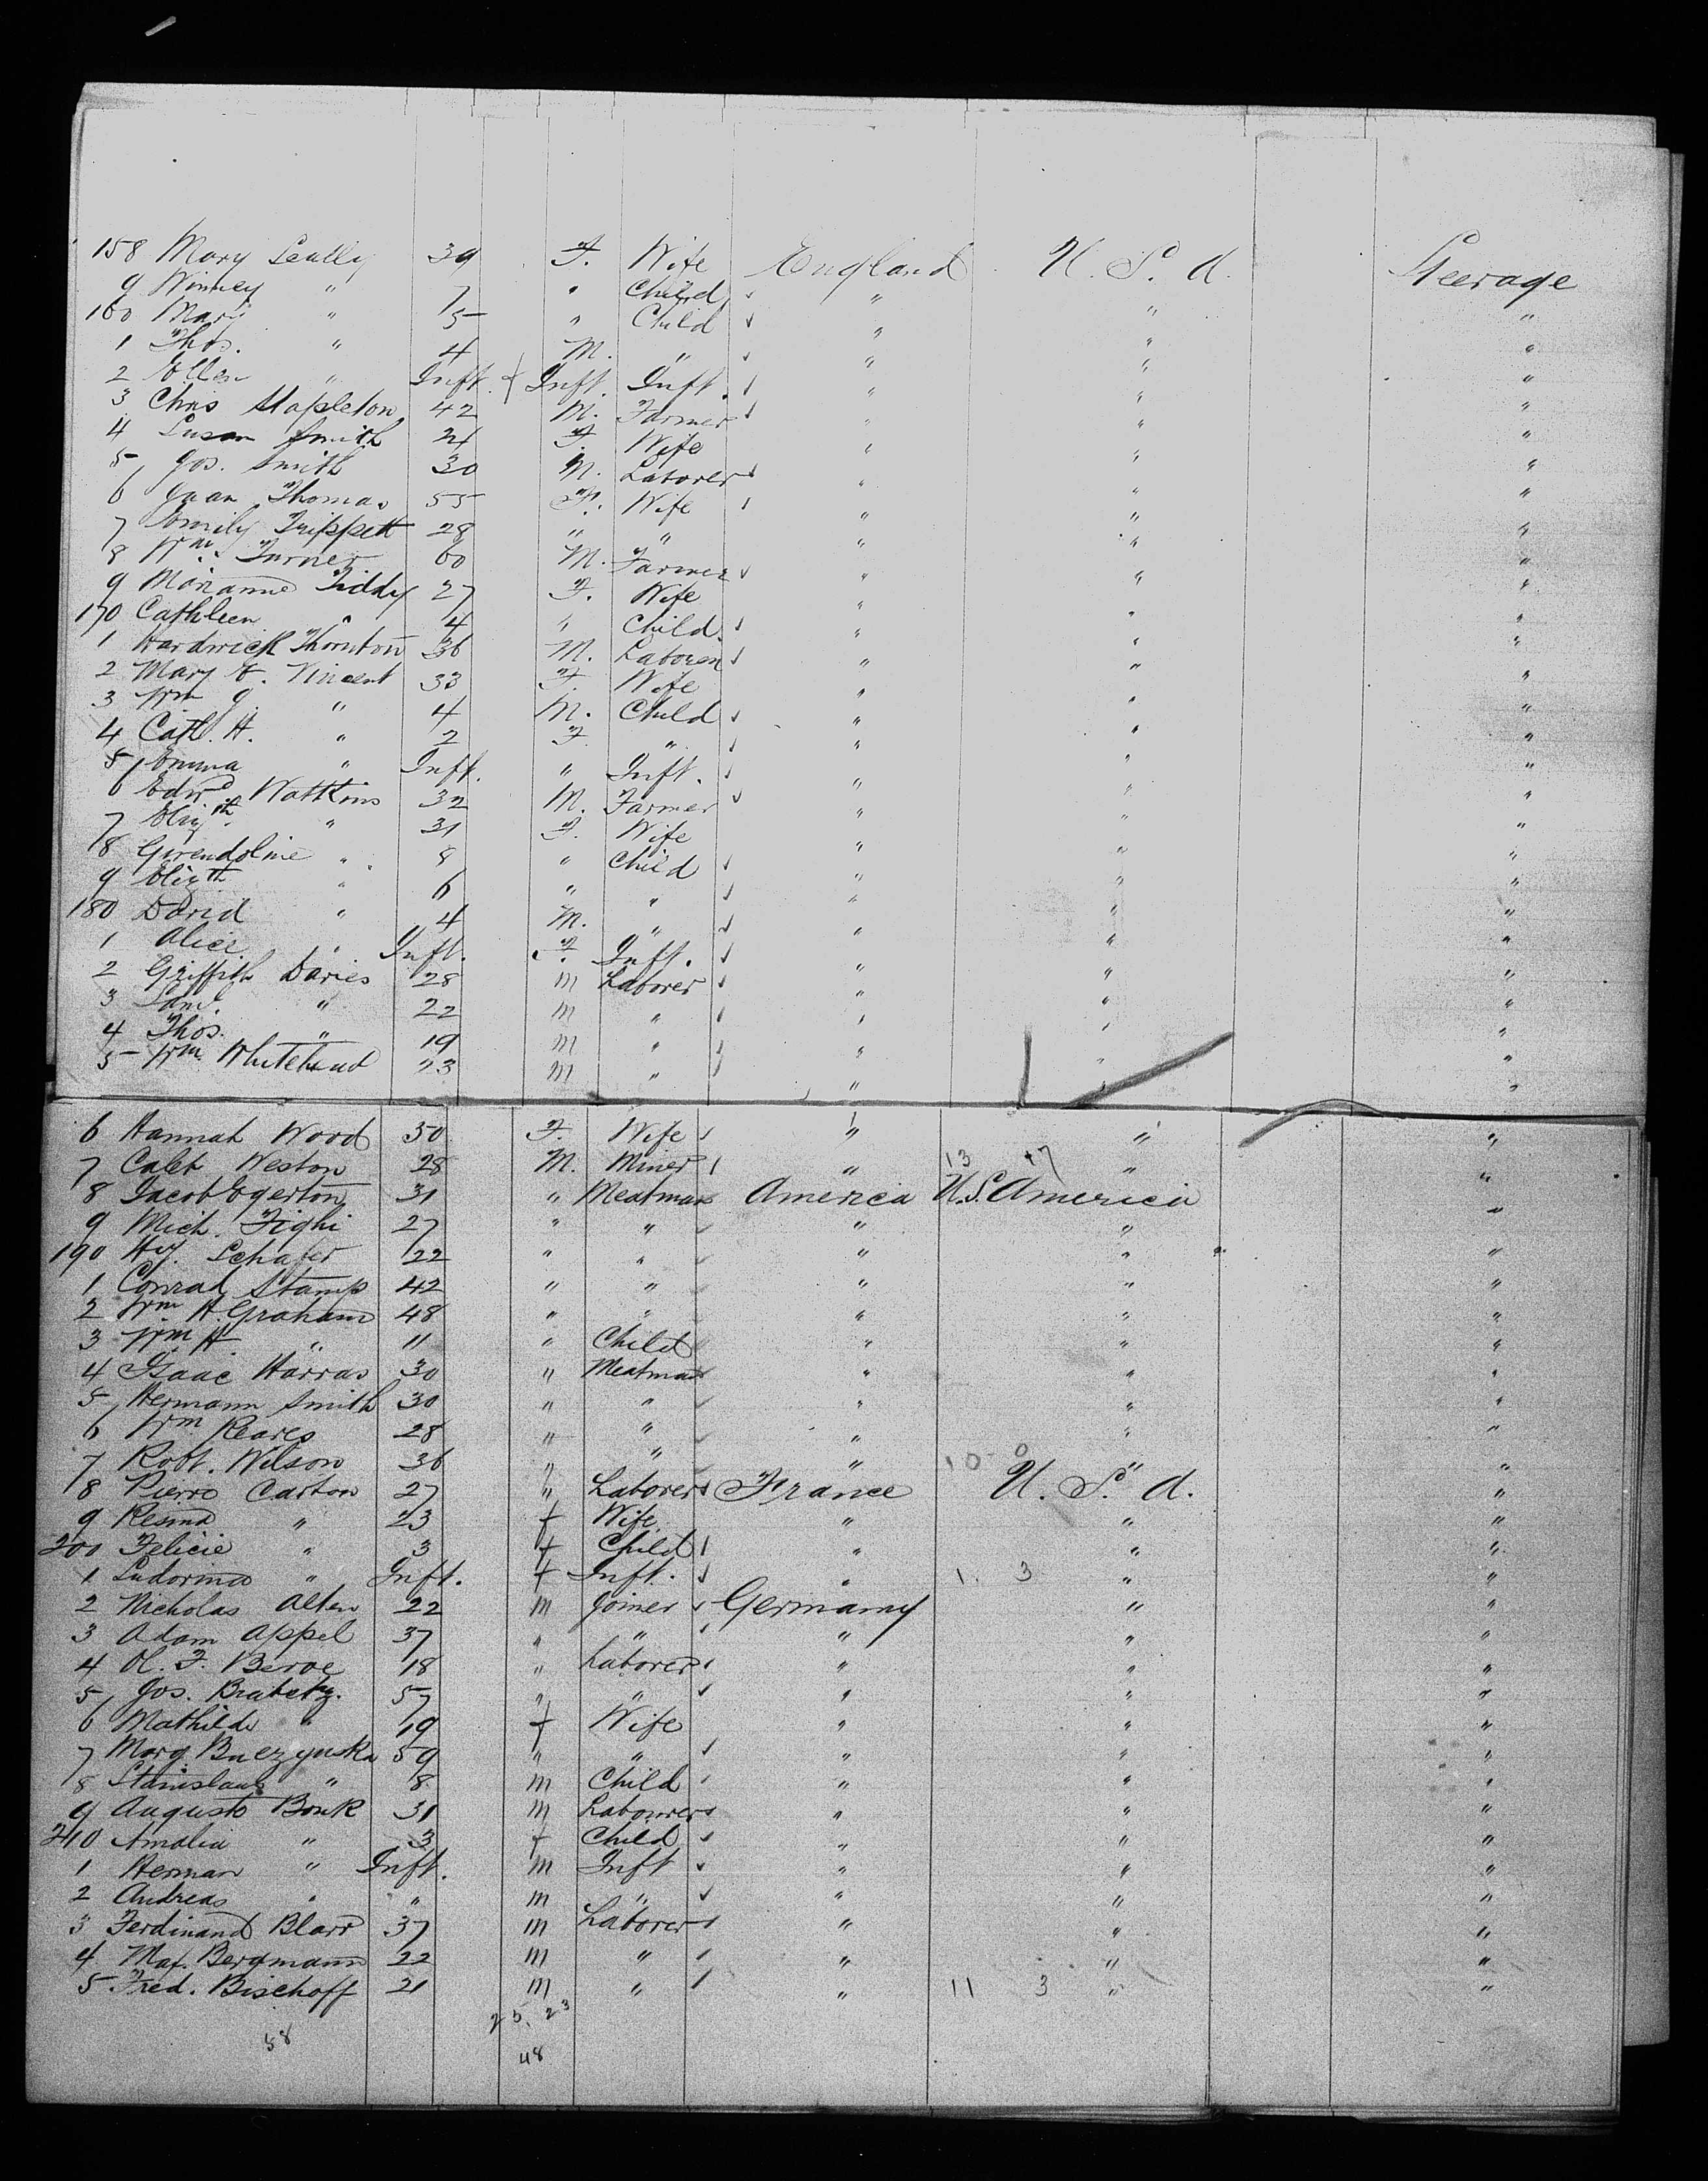 158 Mary Scully 39 F. Wife England U. S. A. Steerage
9 Winney " 7 " Child " " "
160 Mary " 5 " Child " " "
1 Thos. " 4 M. " " " "
2 Ellen " Inft. f Inft. Inft. " " "
3 Chris Stapleton 42 M. Farmer " " "
4 Susan Smith 21 F. Wife " " "
5 Jos. Smith 30 M. Laborer " " "
6 Joan Thomas 55 F. Wife " " "
7 Emily Trippett 28 " " " " "
8 Wm. Turner 60 M. Farmer " " "
9 Morianne Tiddy 27 F. Wife " " "
170 Cathleen " 4 " Child " " "
1 Hardwick Thornton 36 M. Laborer " " "
2 Mary E. Vincent 33 F. Wife " " "
3 Wm J. " 4 M. Child " " "
4 Cath. H. " 2 F. " " " "
5 Emma " Inft. " Inft. " " "
6 Edwd Watkins 32 M. Farmer " " "
7 Elizth. " 31 F. Wife " " "
8 Gwendoline " 8 " Child " " "
9 Elizth " 6 " " " " "
180 David " 4 M. " " " "
1 Alice " Inft. F. Inft. " " "
2 Griffith Davies 28 m Laborer " " "
3 Saml. " 22 m " " " "
4 Thos. " 19 m " " " "
5 Wm. Whitehead 23 m " " " "
6 Hannah Wood 50 F. Wife " " "
7 Caleb Weston 28 M. Miner " 13 "
8 Jacob Egerton 31 " Meatman America U.S. America "
9 Mich. Fighi 27 " " " " "
190 Hy. Schafer 22 " " " " "
1 Conrad Stamp 42 " " " " "
2 Wm H. Graham 48 " " " " "
3 Wm H. " 11 " Child " " "
4 Isaac Harras 30 " Meatman " " "
5 Hermann Smith 30 " " " " "
6 Wm. Reares 28 " " " " "
7 Robt. Wilson 36 " " " 10 0 " "
8 Pierre Carton 27 " Laborer France U. S. A. "
9 Resina " 23 f Wife " " "
200 Felicie " 3 f Child " " "
1 Ludorina " Inft. f Inft. " 1. 3 " "
2 Nicholas Alten 22 m Joiner Germany " "
3 Adam Appel 37 " " " " "
4 O. F. Beroe 18 " Laborer " " "
5 Jos. Brabetz. 57 " " " " "
6 Mathilde " 19 f Wife " " "
7 Marg. Buczynska 59 " " " " "
8 Stanislaus " 8 m Child " " "
9 Auguste Bonk 31 m Labourer " " "
210 Amalia " 3 f Child " " "
1 Herman " Inft. m Inft " " "
2 Andreas " " m " " " "
3 Ferdinand Blarr 37 m Laborer " " "
4 Max. Bergmann 22 m " " " "
5 Fred. Bischoff 21 m " " 11 3 " "
25. 23
58
48